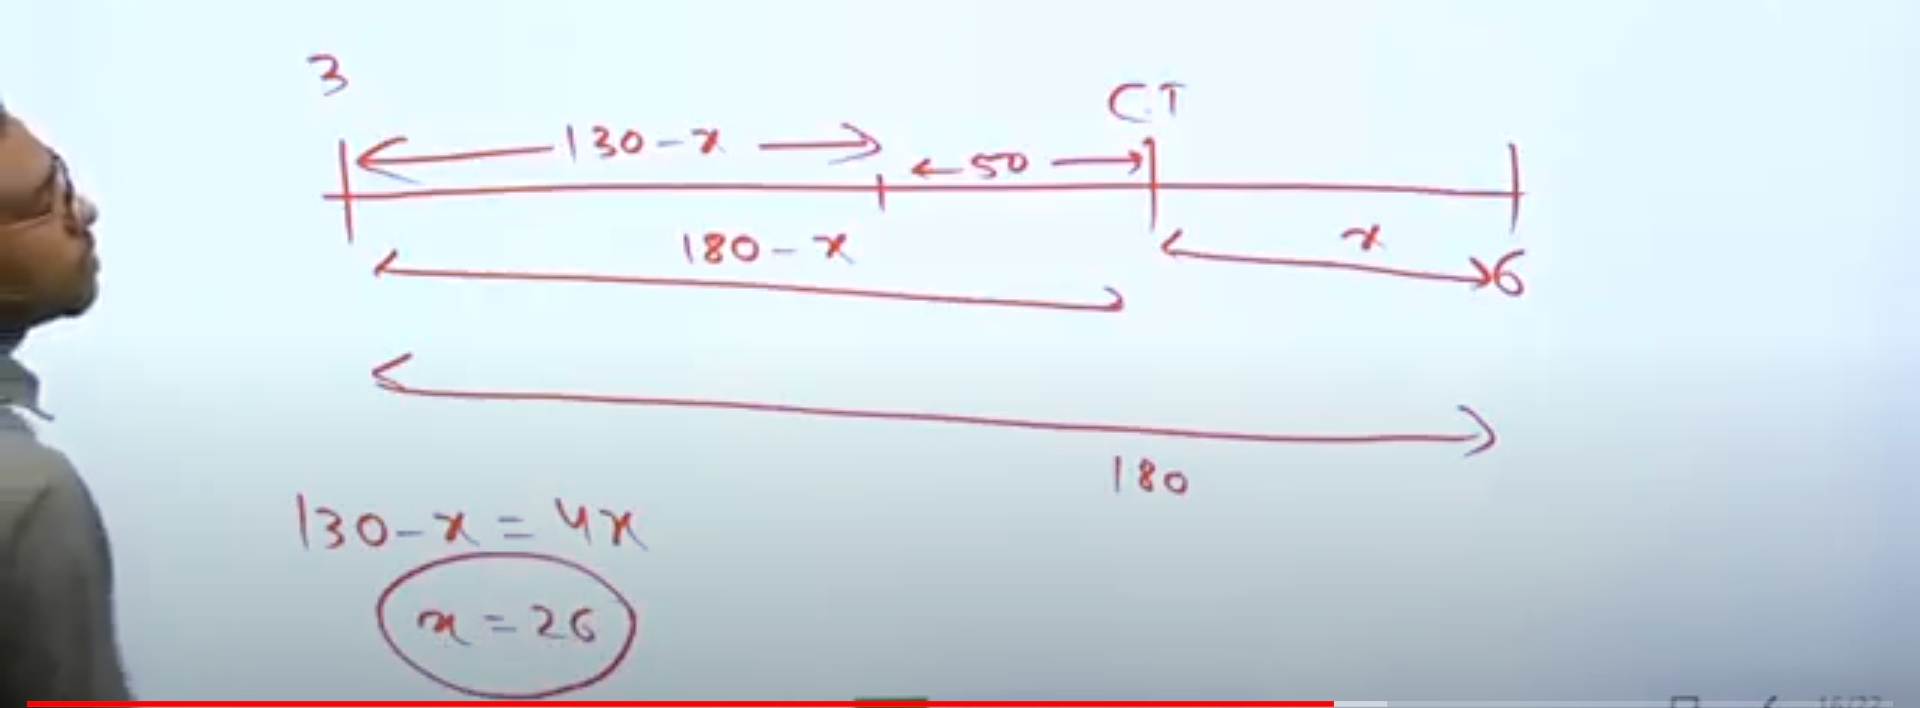 3
CT
130-x
50
180-x
x
6
180
130-x=4x
x=26